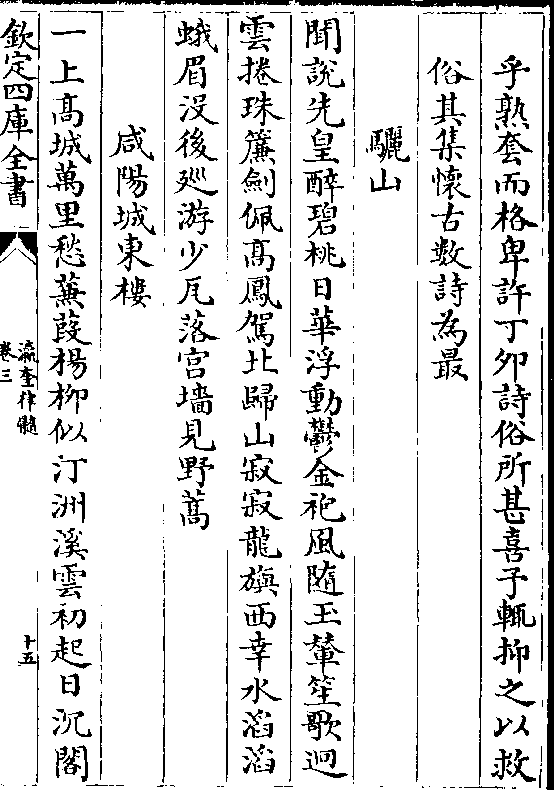 乎熟套而格卑許丁夘詩俗所甚喜予輒抑之以救
俗其集懷古数詩為最
驪山
聞說先皇醉碧桃日華浮動鬱金袍風隨玉輦笙歌迥
雲捲珠簾劍佩髙鳳駕北歸山寂寂龍旗西幸水滔滔
蛾眉没後廵游少瓦落宫墻見野蒿
咸陽城東樓
一上髙城萬里愁蒹葭楊柳似汀洲溪雲初起日沉閣
欽定四庫全書
瀛奎律髓
卷三
十五